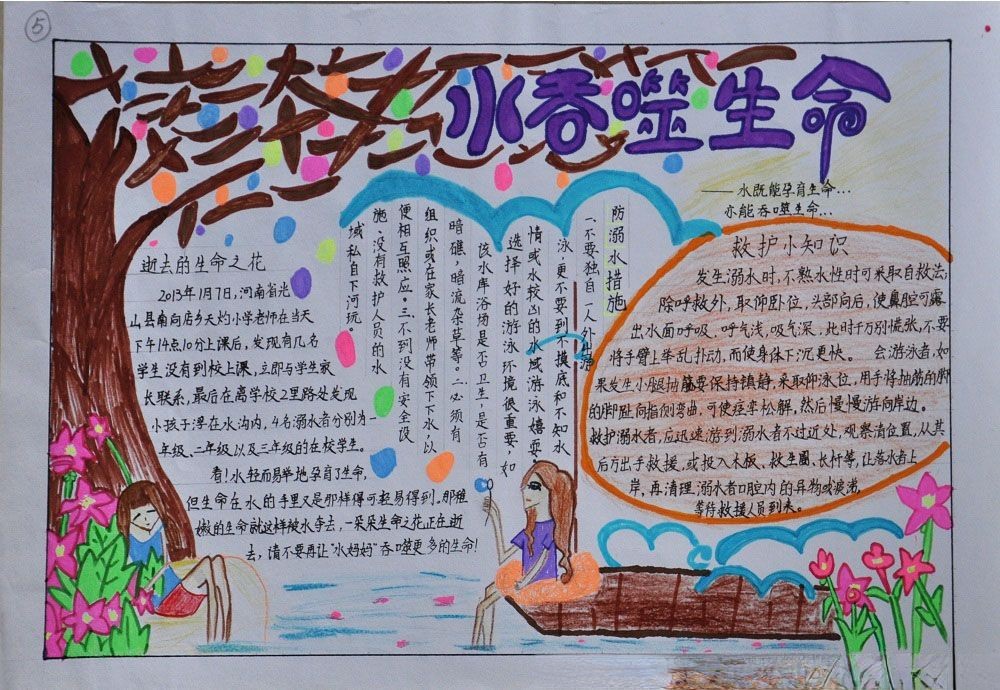 5
水吞噬生命
——水既能孕育生命…
亦能吞噬生命…
逝去的生命之花
2013年1月7日,河南省光
山县南向店乡天灼小学老师在当天
下午14点10分上课后,发现有几名
学生没有到校上课,立即与学生家
长联系,最后在离学校2里路处发现
小孩子浮在水沟内,4名溺水者分别为一
年级、二年级以及三年级的在校学生。
看!水轻而易举地孕育了生命,
但生命在水的手里又是那样得可轻易得到,那稚
嫩的生命就这样被水夺去,一朵朵生命之花正在逝
去,请不要再让"水妈妈"吞噬更多的生命!
防溺水措施
一、不要独自一人外出游
泳,更不要到不摸底和不知水
情或水较凶的水域游泳嬉耍。
选择好的游泳环境很重要,如
该水库浴场是否卫生,是否有
暗礁,暗流杂草等。二、必须有
组织或在家长老师带领下下水,以
便相互照应。三、不到没有安全设
施、没有救护人员的水
域私自下河玩。
救护小知识
发生溺水时,不熟水性时可采取自救法;
除呼救外,取仰卧位,头部向后,使鼻腔可露
出水面呼吸。呼气浅,吸气深。此时千万别慌张,不要
将手臂上举乱扑动,而使身体下沉更快。 会游泳者,如
果发生小腿抽筋要保持镇静,采取仰泳位,用手将抽筋的脚
的脚趾向指侧弯曲,可使痉挛松解,然后慢慢游向岸边。
救护溺水者,应迅速游到溺水者不过近处,观察清位置,从其
后方出手救援,或投入木板、救生圈、长杆等,让落水者上
岸,再清理溺水者口腔内的异物或
等待救援人员到来。